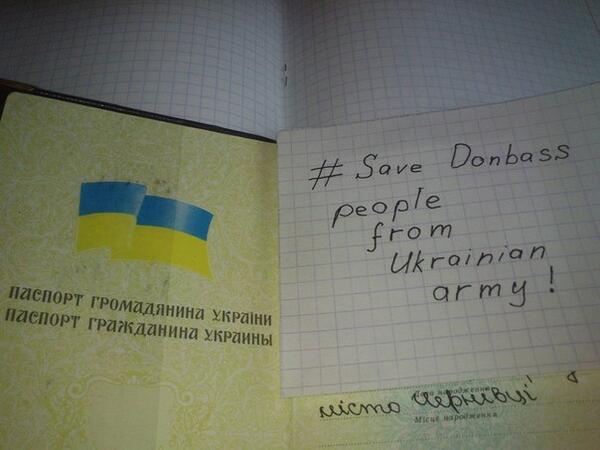 # Save Donbass
people
from
Ukrainian
army!
ПАСПОРТ ГРОМАДЯНИНА УКРАЇНИ
ПАСПОРТ ГРАЖДАНИНА УКРАИНЫ
народження
місто Чернівці
Місце народження